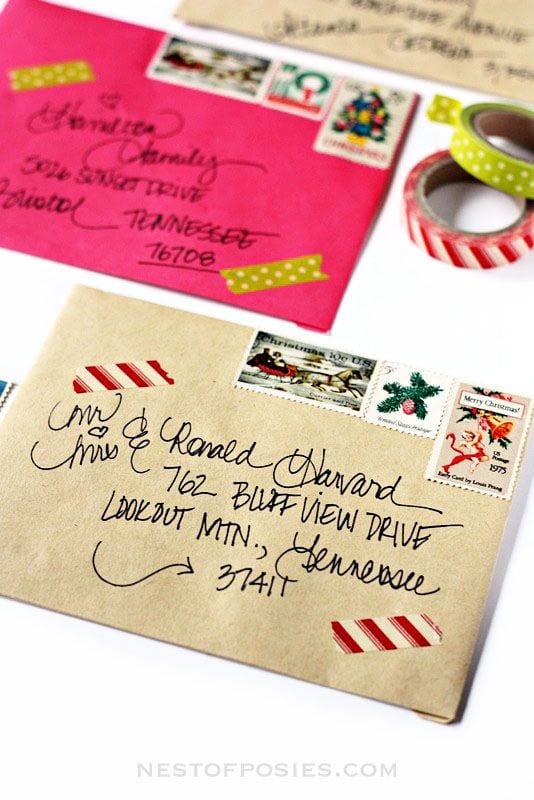 GEORGIA
Hamilton
Family
5026 SUNSET DRIVE
Bristol TENNESSEE
76708
CHRISTMAS
Christmas 10c U.S.
Currier and Ives
Merry Christmas!
US
Postage
1975
Early Card by Louis Prang
Mr &
Mrs Ronald Harvard
762 BLUFF VIEW DRIVE
LOOKOUT MTN., Tennessee
37411
NESTOFPOSIES.COM